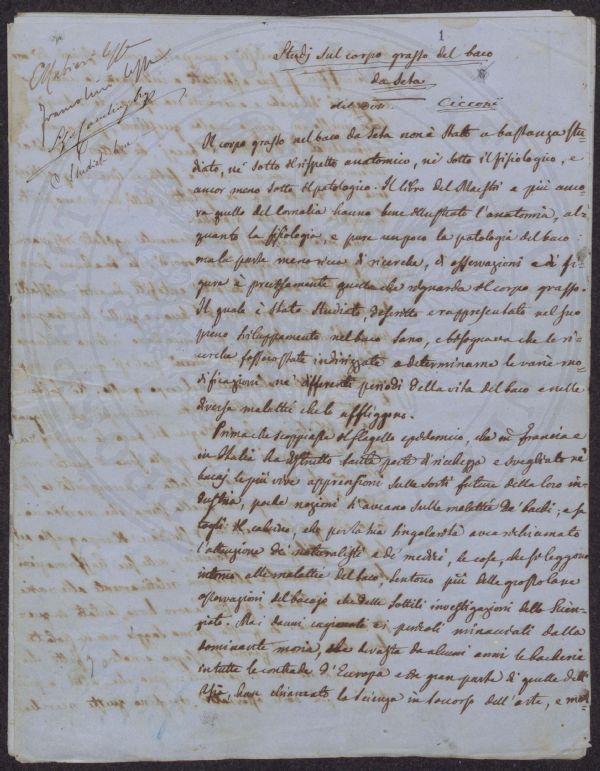 1
Studj sul corpo grasso del baco
da seta
del Dott. Cicconi
Il corpo grasso nel baco da seta non è stato a bastanza stu-
diato, nè sotto il rispetto anatomico, nè sotto il fisiologico, e
ancor meno sotto il patologico. Il libro del Maestri e più anco-
ra quello del Cornalia hanno bene illustrato l'anatomia, al-
quanto la fisiologia, e pure un poco la patologia del baco:
ma la parte meno ricca di ricerche, di osservazioni e di fi-
gure è precisamente quella che risguarda il corpo grasso.
Il quale è stato studiato, descritto e rappresentato nel suo
pieno sviluppamento nel baco sano, e bisognava che le ri-
cerche fossero state indirizzate a determinarne le varie mo-
dificazioni ne' differenti periodi della vita del baco e nelle
diverse malattie che lo affliggono.
Prima che scoppiasse il flagello epidemico, che in Francia e
in Italia ha distrutto tanta parte di ricchezza e svegliato ne'
bacaj le più vive apprensioni sulle sorti future della loro in-
dustria, poche nozioni si aveano sulle malattie de' bachi; e se
togli il calcino, che per la sua singolarità avea richiamato
l'attenzione de' naturalisti e de' medici, le cose, che si leggono
intorno alle malattie del baco, sentono più delle grossolane
osservazioni del bacajo che delle sottili investigazioni dello scien-
ziato. Ma i danni cagionati e i pericoli minacciati dalla
dominante moria, che devasta da alcuni anni le bacherie
in tutte le contrade d'Europa e in gran parte di quelle dell'
Asia, hanno chiamato la scienza in soccorso dell'arte, e mol-